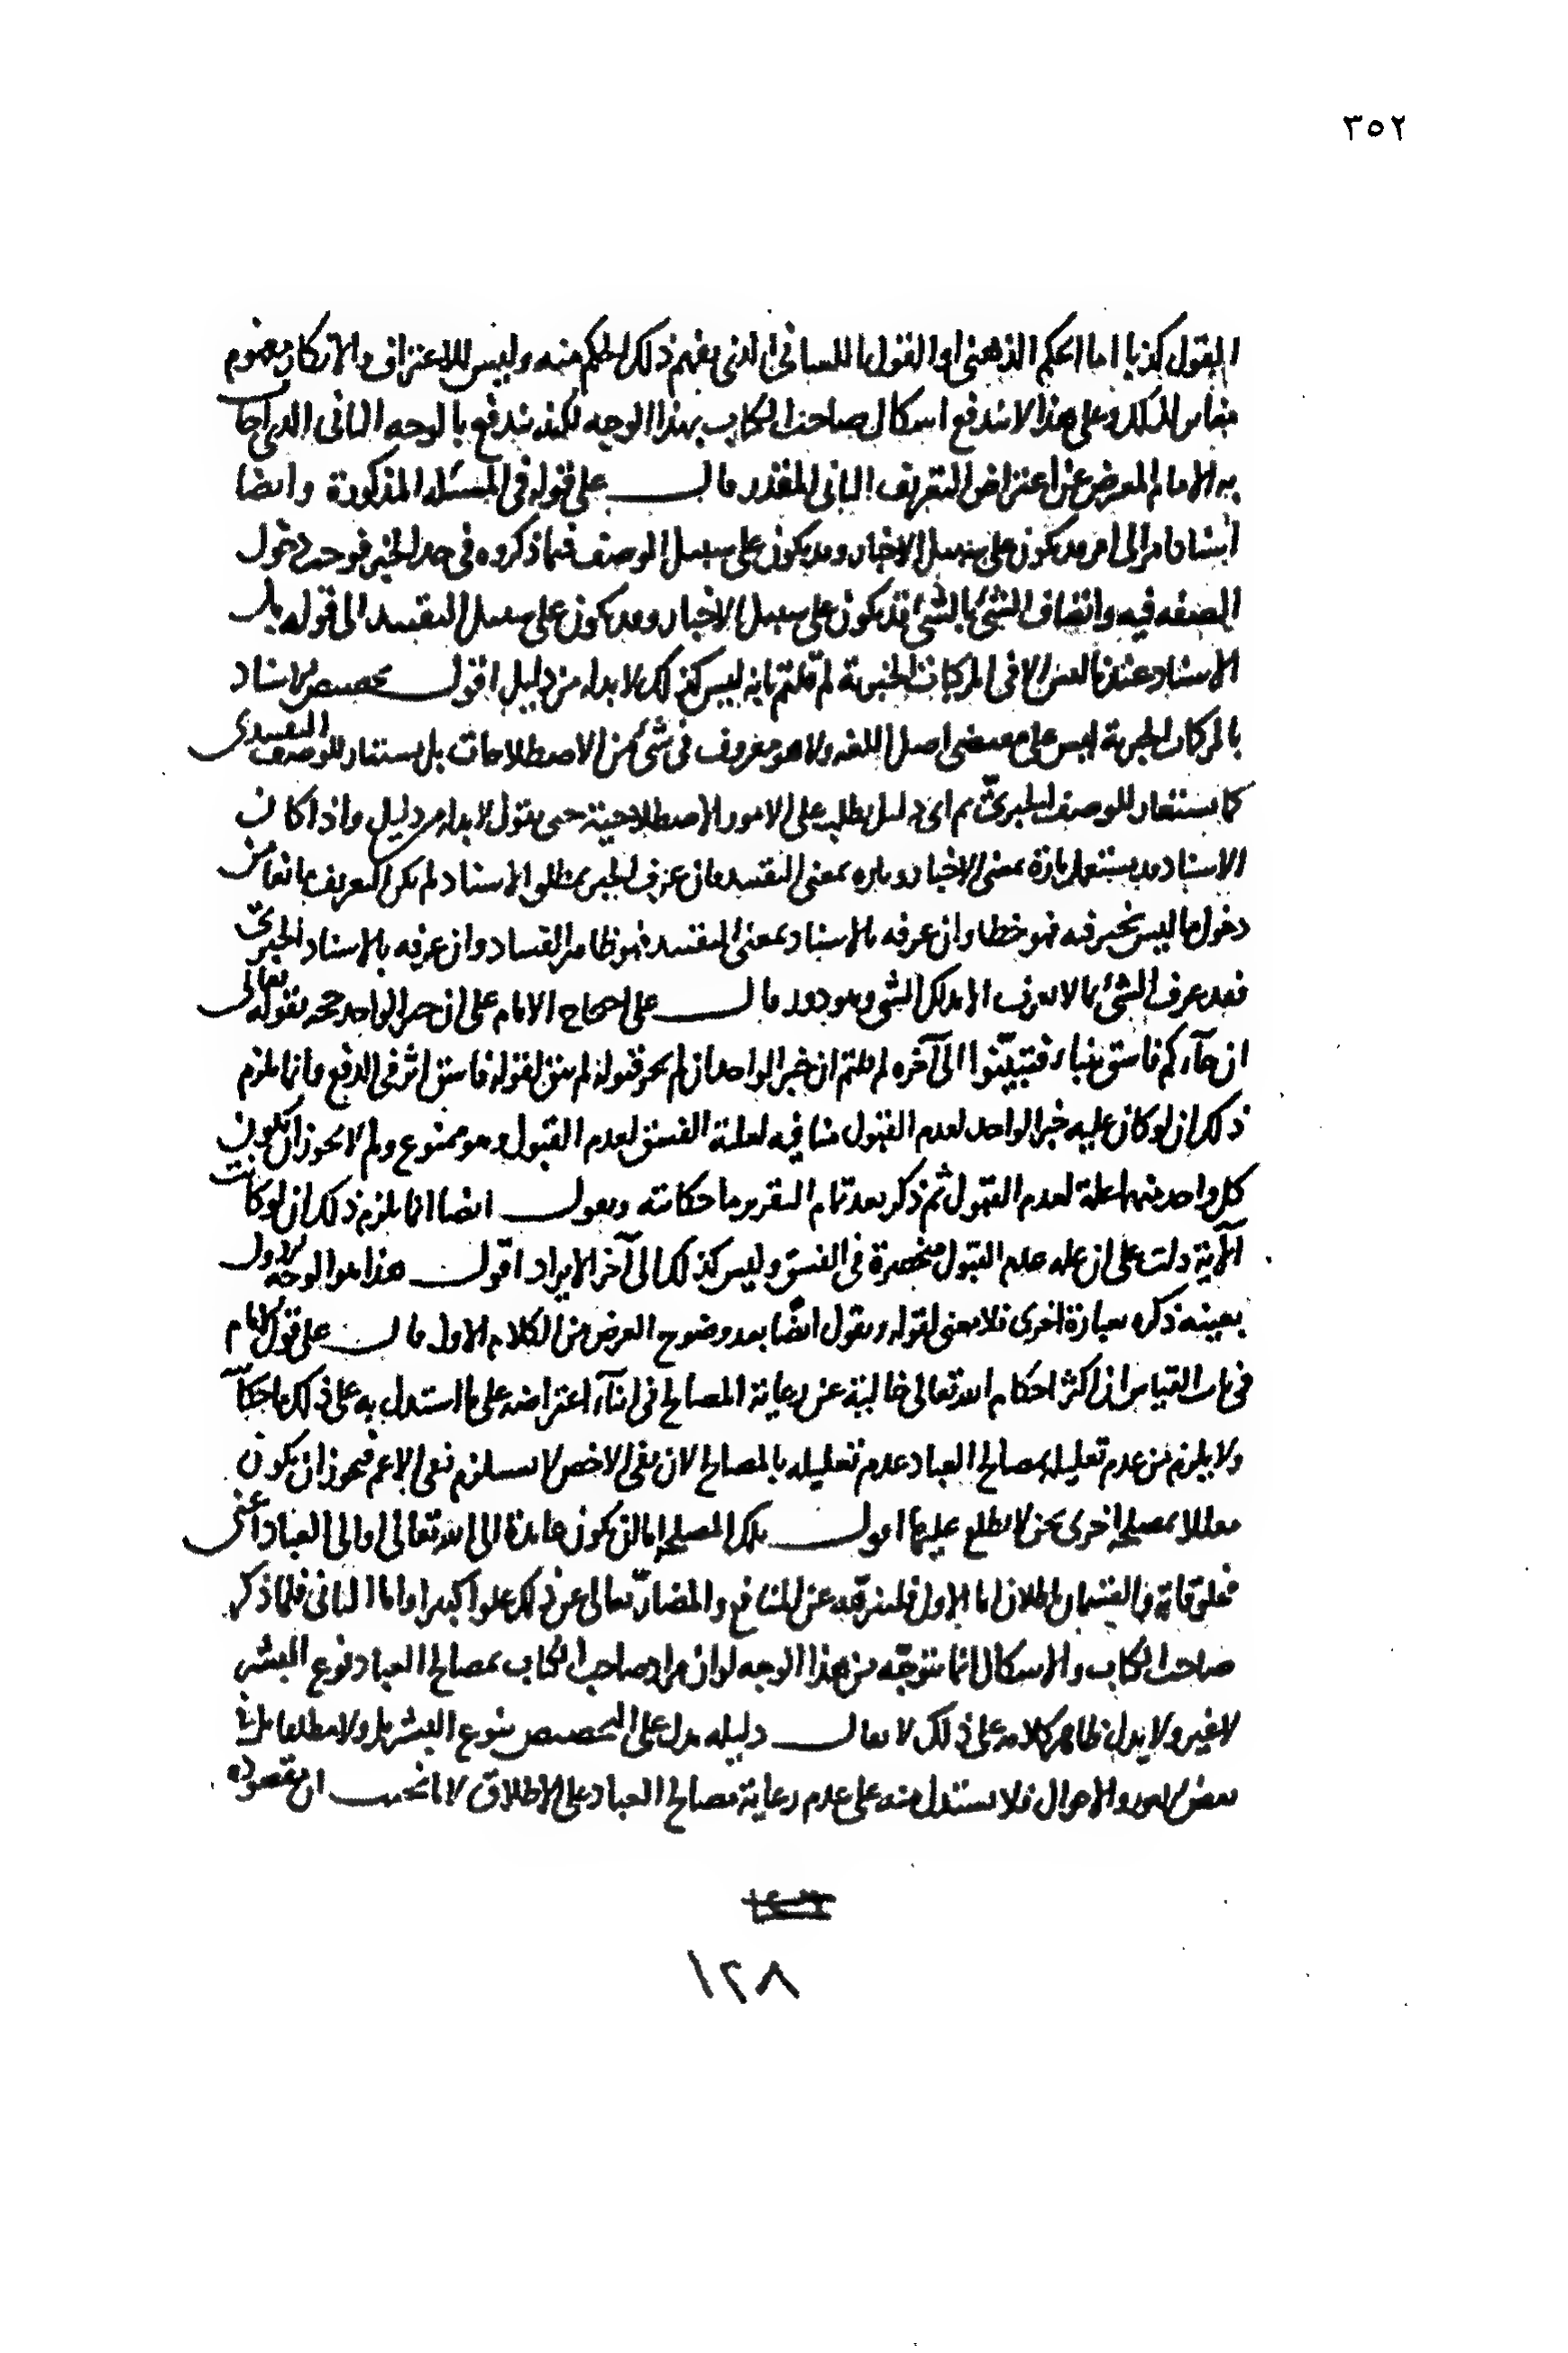 ٣٥٢
القول كذبا اما الحكم الذهني او القول اللساني الذي يفهم ذلك الحكم منه وليس للاعتراف والانكار مفهوم
مغاير لذلك وعلى هذا لا يندفع اشكال صاحب الكتاب بهذا الوجه لكنه يندفع بالوجه الثاني الذي اجاب
به الامام المعرض عن اعتراض التعريف الثاني قال على قوله في المسئلة المذكورة وايضا
اسناد امر الى امر قد يكون على سبيل الاخبار وقد يكون على سبيل الوصف فما ذكروه في حد الخبر فوجب دخول
الصفه فيه واتصاف الشئ بالشئ قد يكون على سبيل الاخبار وقد يكون على سبيل التقييد الى قوله بل
الاسناد عندنا ليس الا في المركبات الخبرية لم قلتم بانه ليس كذلك لا بد له من دليل اقول تخصيص الاسناد
بالمركبات الخبرية ليس على مقتضى اصل اللغه ولا هو معروف في شئ من الاصطلاحات بل يستعار للوصف التقييدي
كما يستعار للوصف الخبري ثم اى دليل يطلب على الامور الاصطلاحية حتى يقول لا بد له من دليل واذا كان
الاسناد قد يستعمل تارة بمعنى الاخبار وتاره بمعنى التقييد فان عرف الخبر بمطلق الاسناد لم يكن التعريف مانعا من
دخول ما ليس بخبر فيه فهو خطا وان عرفه بالاسناد بمعنى التقييد فهو ظاهر الفساد وان عرفه بالاسناد الخبري
فقد عرف الشئ بما لا يعرف الا بذلك الشئ وهو دور قال على احتجاج الامام على ان خبر الواحد حجه بقوله تعالى
ان جآءكم فاسق بنبا فتبيّنوا الى آخره لم قلتم ان خبر الواحد ان لم يجز قبوله لم يبق لقوله فاسق اثر في الدفع وانما يلزم
ذلك ان لو كان علية خبر الواحد لعدم القبول منافيه لعلية الفسق لعدم القبول وهو ممنوع ولم لا يجوز ان يكون
كل واحد منهما علة لعدم القبول ثم ذكر بعد تمام التقرير ما حكايته ويقول ايضا انما يلزم ذلك ان لو كانت
الآية دلت على ان علة عدم القبول منحصرة في الفسق وليس كذلك الى آخر الايراد اقول هذا هو الوجه الاول
بعينه ذكره بعبارة اخرى فلا معنى لقوله ويقول ايضًا بعد وضوح الغرض من الكلام الاول قال على قول الامام
في باب القياس ان اكثر احكام الله تعالى خالية عن رعاية المصالح في اثنآء اعتراضه على ما استدل به على ذلك
ولا يلزم من عدم تعليله بمصالح العباد عدم تعليله بالمصالح لان نفى الاخص لا يستلزم نفى الاعم فيجوز ان يكون
معللا بمصلحة اخرى نحن لا نطلع عليها اقول تلك المصلحة اما ان تكون عايدة الى الله تعالى او الى العباد اعنى
والقسمان باطلان اما الاول فلتنزّهه عن المنافع والمضارّ تعالى عن ذلك علوا كبيرا واما الثاني فلما ذكر
صاحب الكتاب والاشكال انما يتوجّه من هذا الوجه لو ان مراد صاحب الكتاب بمصالح العباد نوع البشر
لا غير ولا يدل ظاهر كلامه على ذلك لا يقال دليله يدل على التخصيص بنوع البشر بل ولا مطلقا بل في
بعض الامور والاحوال فلا يستدل منه على عدم رعاية مصالح العباد على الاطلاق لانا نجيب ان مقصوده
١٢٨